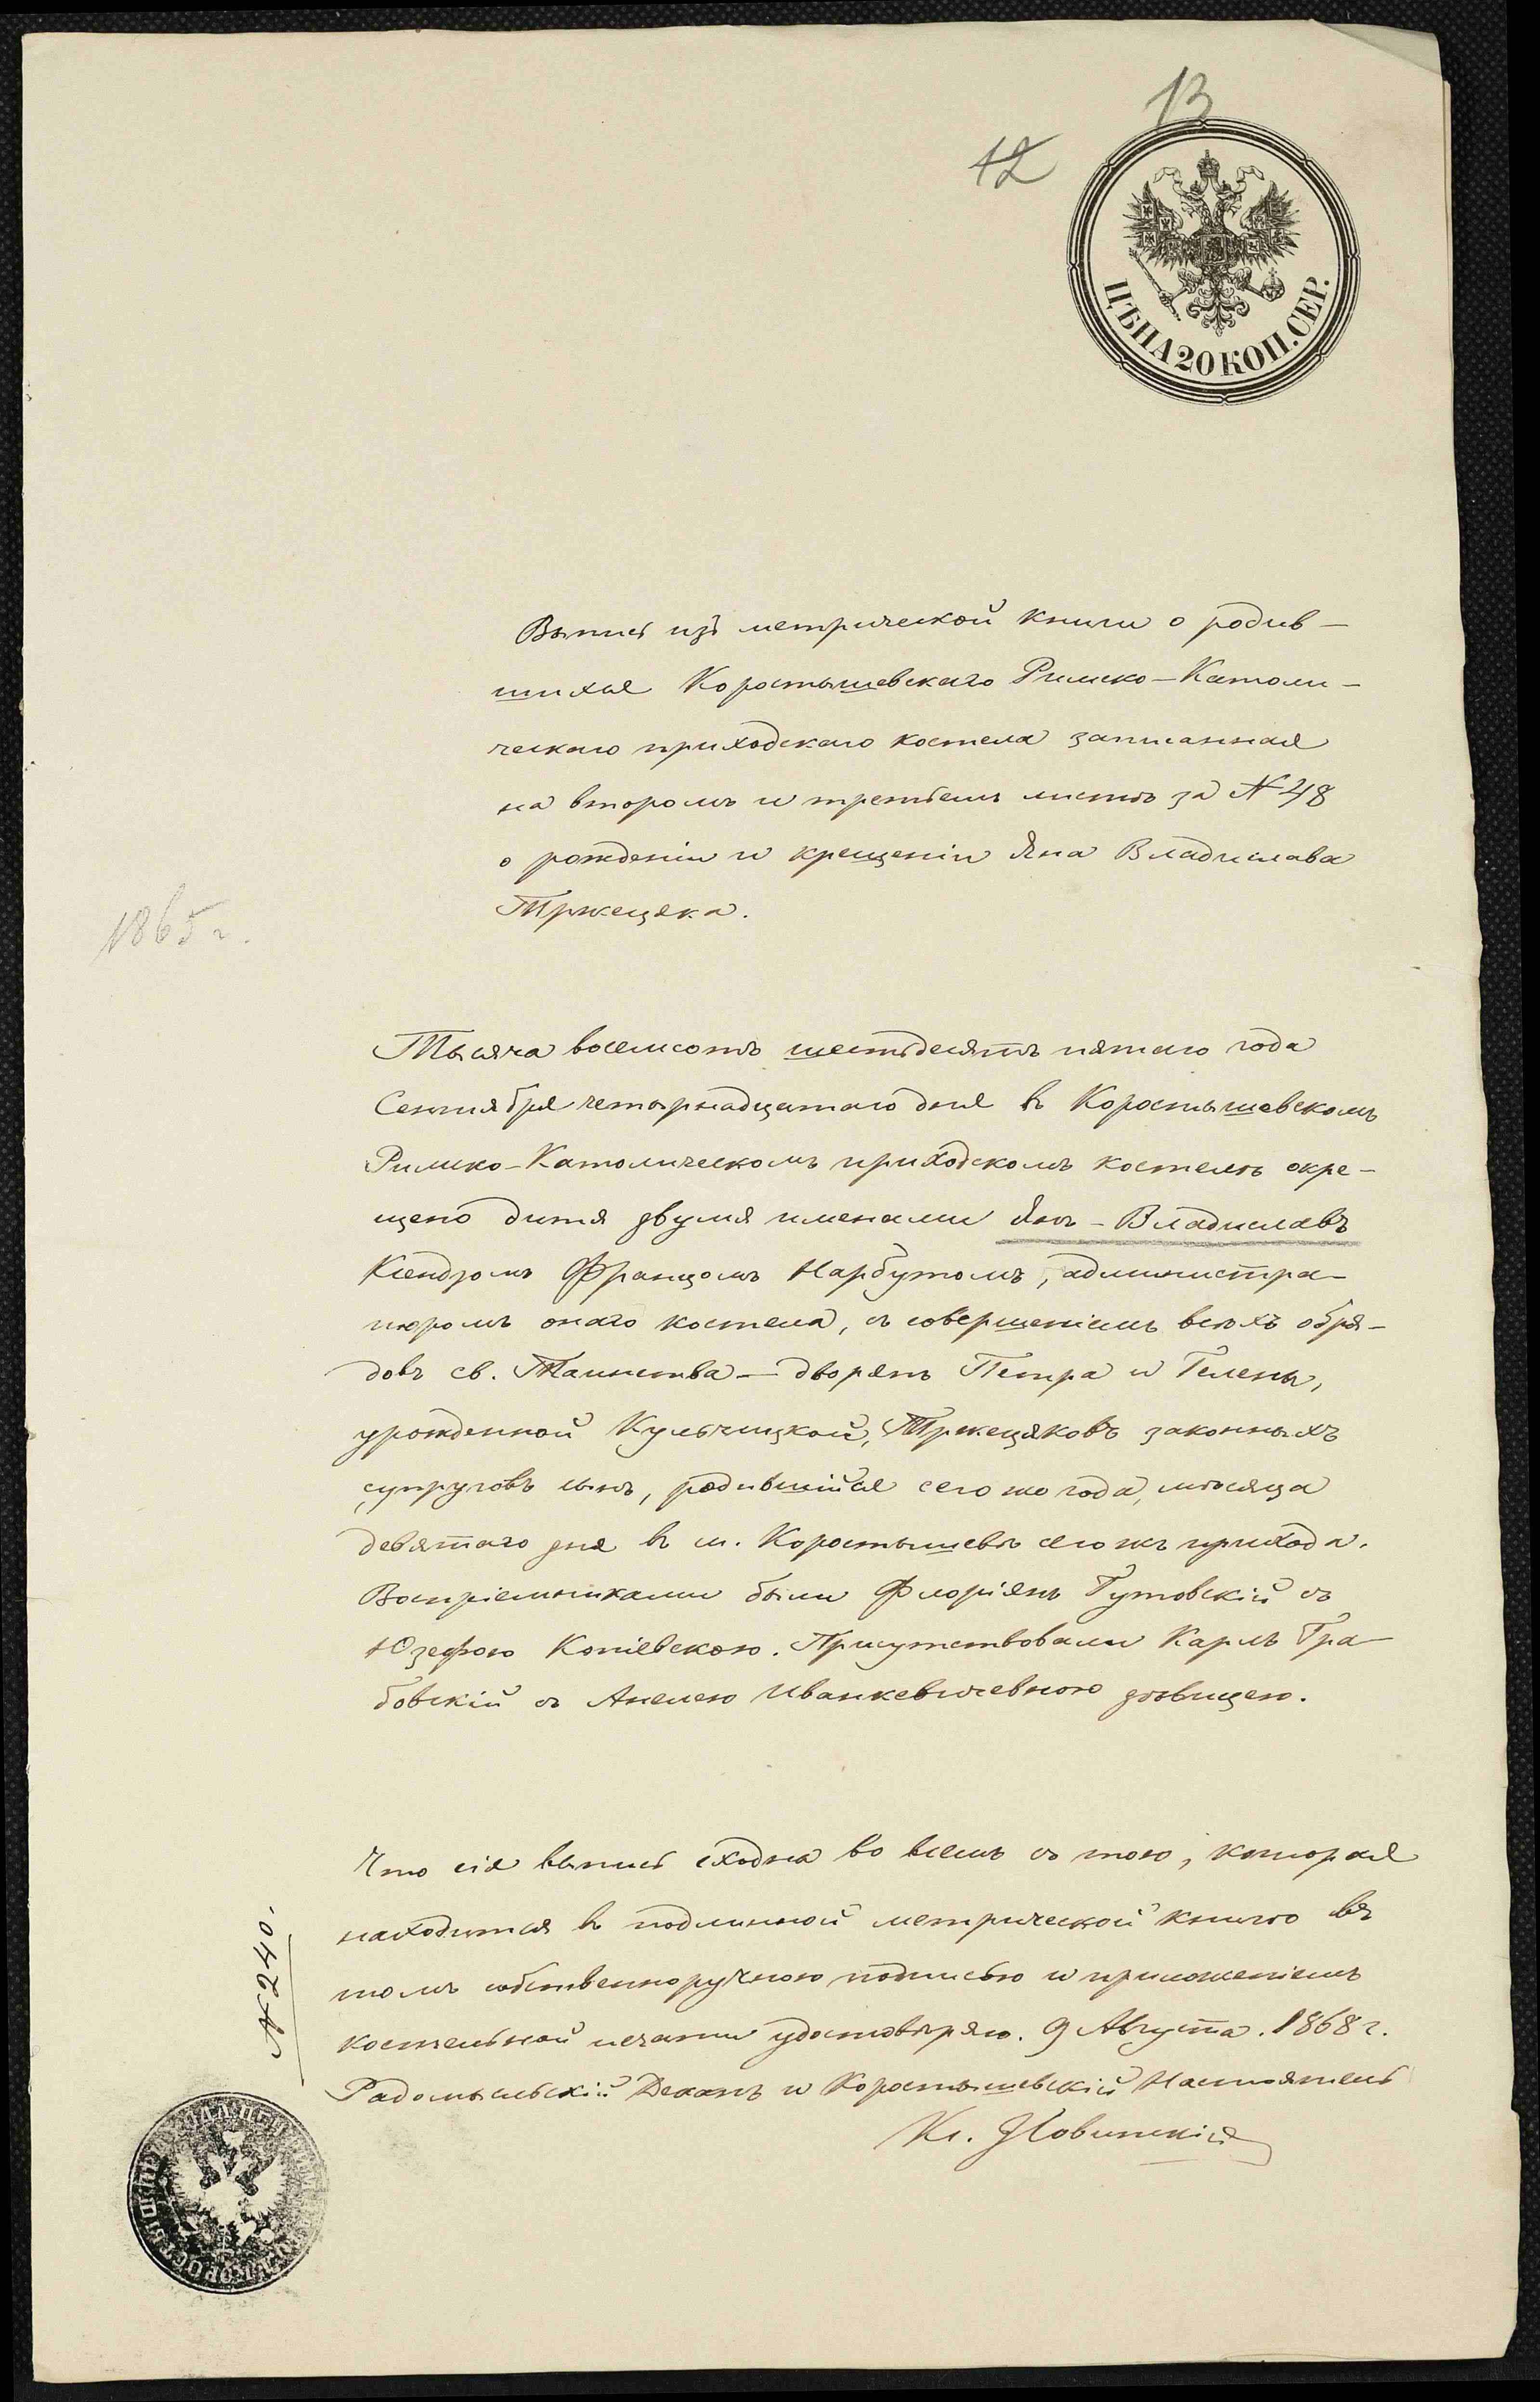 13
12
ЦѢНА 20 КОП. СЕР.
Выпись изъ метрической книги о родив-
шихся Коростышевскаго Римско-Католи-
ческаго приходскаго костела записанная
на второмъ и третьемъ листѣ за № 48
о рожденіи и крещеніи Яна Владислава
Тржецяка.
1865 г.
Тысяча восемсотъ шестьдесятъ пятаго года
Сентября четырнадцатаго дня въ Коростышевскомъ
Римско-Католическомъ приходскомъ костелѣ окре-
щено дитя двумя именами Янъ-Владиславъ
Ксендзомъ Францомъ Нарбутомъ, администра-
торомъ онаго костела, съ совершеніемъ всѣхъ обря-
довъ св. Таинства — дворянъ Петра и Гелены,
урожденной Кульчицкой, Тржецяковъ законныхъ
супруговъ сынъ, родившійся сего же года, мѣсяца
девятаго дня въ м. Коростышевѣ сего жъ прихода.
Воспріемниками были Флоріянъ Гутовскій съ
Юзефою Копіевскою. Присутствовали Карлъ Гра-
бовскій съ Анелею Иванкевичевною дѣвицею.
Что сія выпись сходна во всемъ съ тою, которая
находится въ подлинной метрической книгѣ въ
томъ собственноручною подписью и приложеніемъ
костельной печати удостовѣряю. 9 Августа. 1868 г.
Радомысльскій Деканъ и Коростышевскій Настоятель
Кс. Новинскій
№ 240.